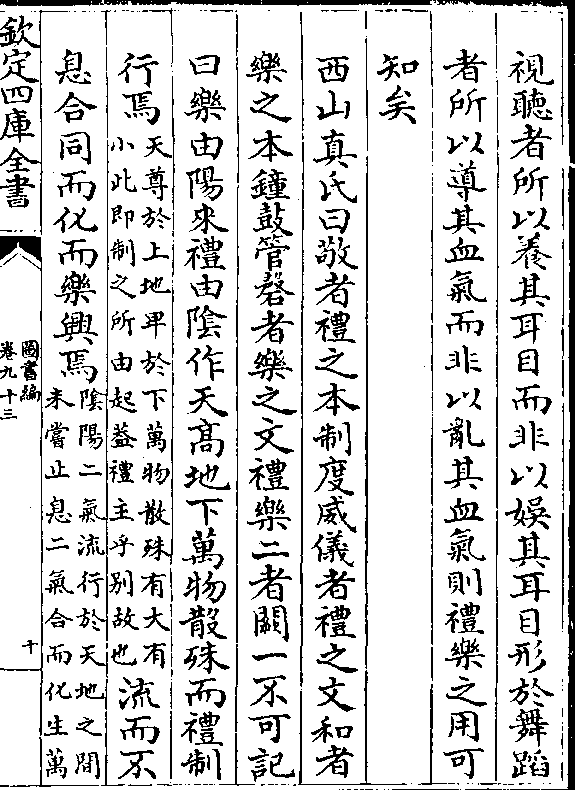 視聽者所以養其耳目而非以娛其耳目形於舞蹈
者所以導其血氣而非以亂其血氣則禮樂之用可
知矣
西山真氏曰敬者禮之本制度威儀者禮之文和者
樂之本鐘鼓管磬者樂之文禮樂二者闕一不可記
曰樂由陽來禮由陰作天髙地下萬物散殊而禮制
行焉天尊於上地卑於下萬物散殊有大有
小此即制之所由起葢禮主乎別故也流而不
息合同而化而樂興焉陰陽二氣流行於天地之間
未嘗止息二氣合而化生萬
欽定四庫全書
圖書編
卷九十三
十